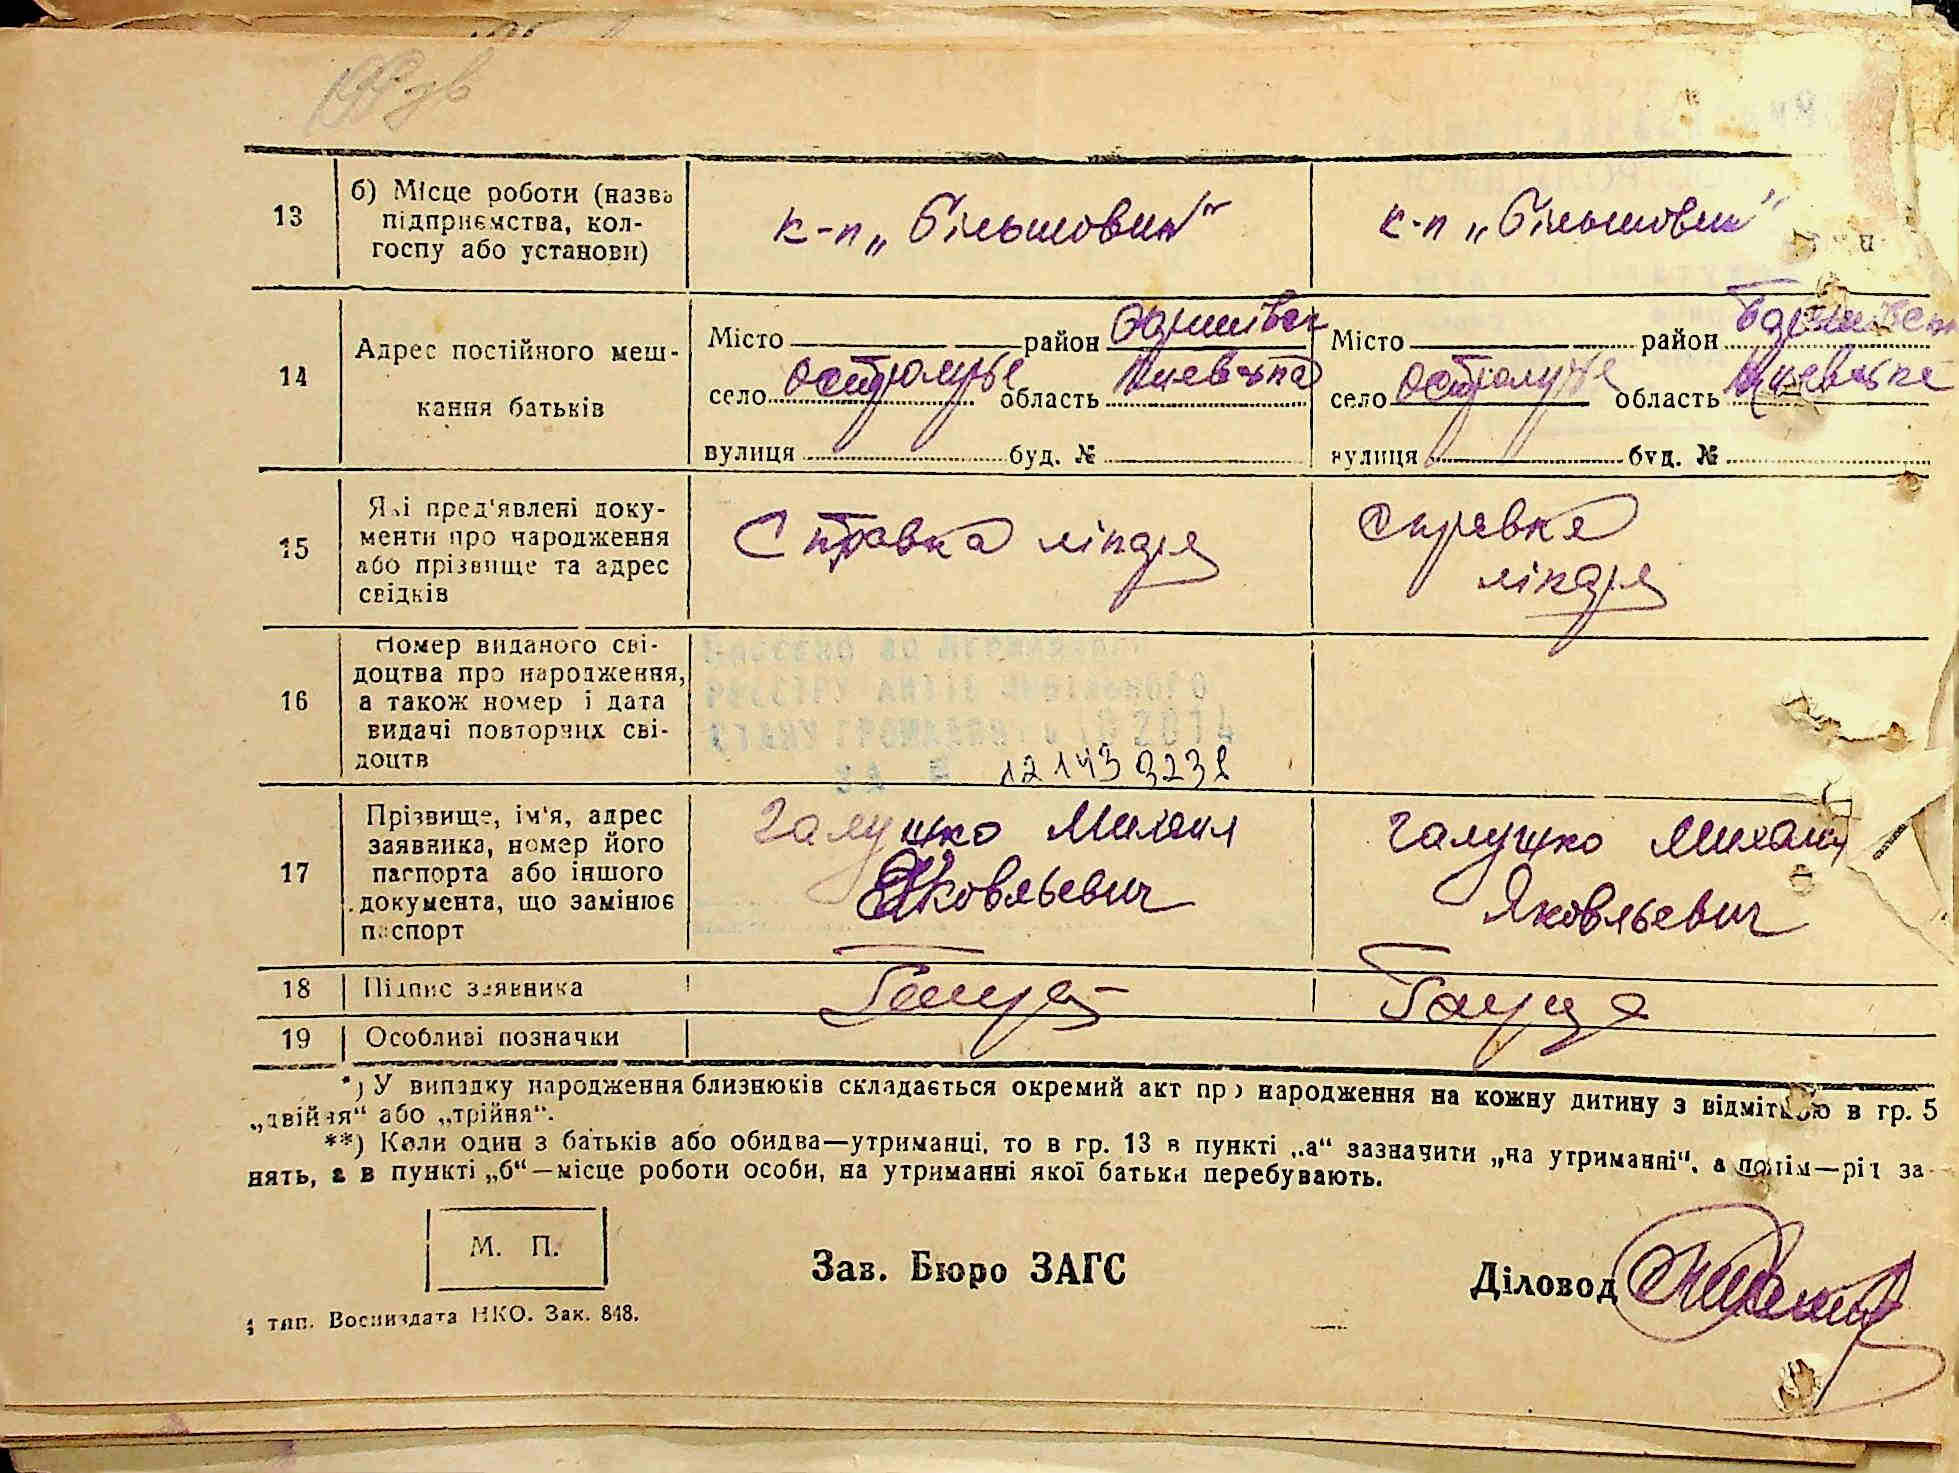 13
б) Місце роботи (назва
підприємства, кол-
госпу або установи)
к-п „Більшовик"
к-п „Більшовик"
14
Адрес постійного меш-
кання батьків
Місто район Баришівськ
село Остролуччє область Киевська
вулиця буд. №
Місто район Баришівськ
село Остролуччє область Киевська
вулиця буд. №
15
Які пред'явлені доку-
менти про народження
або прізвище та адрес
свідків
Справка лікаря
Справка
лікаря
16
Номер виданого сві-
доцтва про народження,
а також номер і дата
видачі повторних сві-
доцтв
Внесено до Державного
РЕЄСТРУ АКТІВ ЦИВІЛЬНОГО
СТАНУ ГРОМАДЯН 2014
ЗА №
17
Прізвище, ім'я, адрес
заявника, номер його
паспорта або іншого
документа, що замінює
паспорт
Галушко Михаил
Яковльевич
Галушко Михаил
Яковльевич
18
Підпис заявника
19
Особливі позначки
*) У випадку народження близнюків складається окремий акт про народження на кожну дитину з відміткою в гр. 5
„двійня“ або „трійня“.
**) Коли один з батьків або обидва—утриманці, то в гр. 13 в пункті „а“ зазначити „на утриманні“, а потім—рід за-
нять, а в пункті „б“—місце роботи особи, на утриманні якої батьки перебувають.
М. П.
Зав. Бюро ЗАГС
Діловод
тип. Воениздата НКО. Зак. 848.